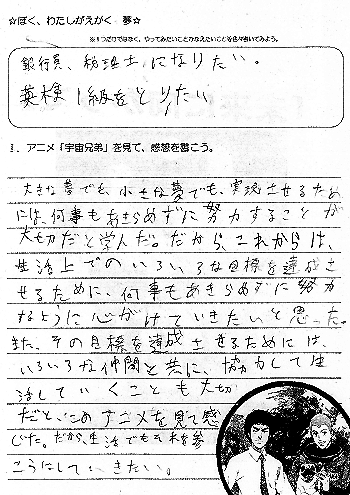 ☆ぼく、わたしがえがく 夢☆
※1つだけではなく、やってみたいことやかなえたいことを色々書いてみよう。
銀行員、税理士になりたい。
英検1級をとりたい
1. アニメ「宇宙兄弟」を見て、感想を書こう。
大きな夢でも、小さな夢でも、実現させるため
には、何事もあきらめずに努力することが
大切だと学んだ。だから、これからは、
生活上でのいろいろな目標を達成さ
せるために、何事もあきらめずに努力
するように心がけていきたいと思った。
また、その目標を達成させるためには、
いろいろな仲間と共に、協力して生
活していくことも大切
だと、このアニメを見て感
じた。だから、生活でも
こうにしていきたい。